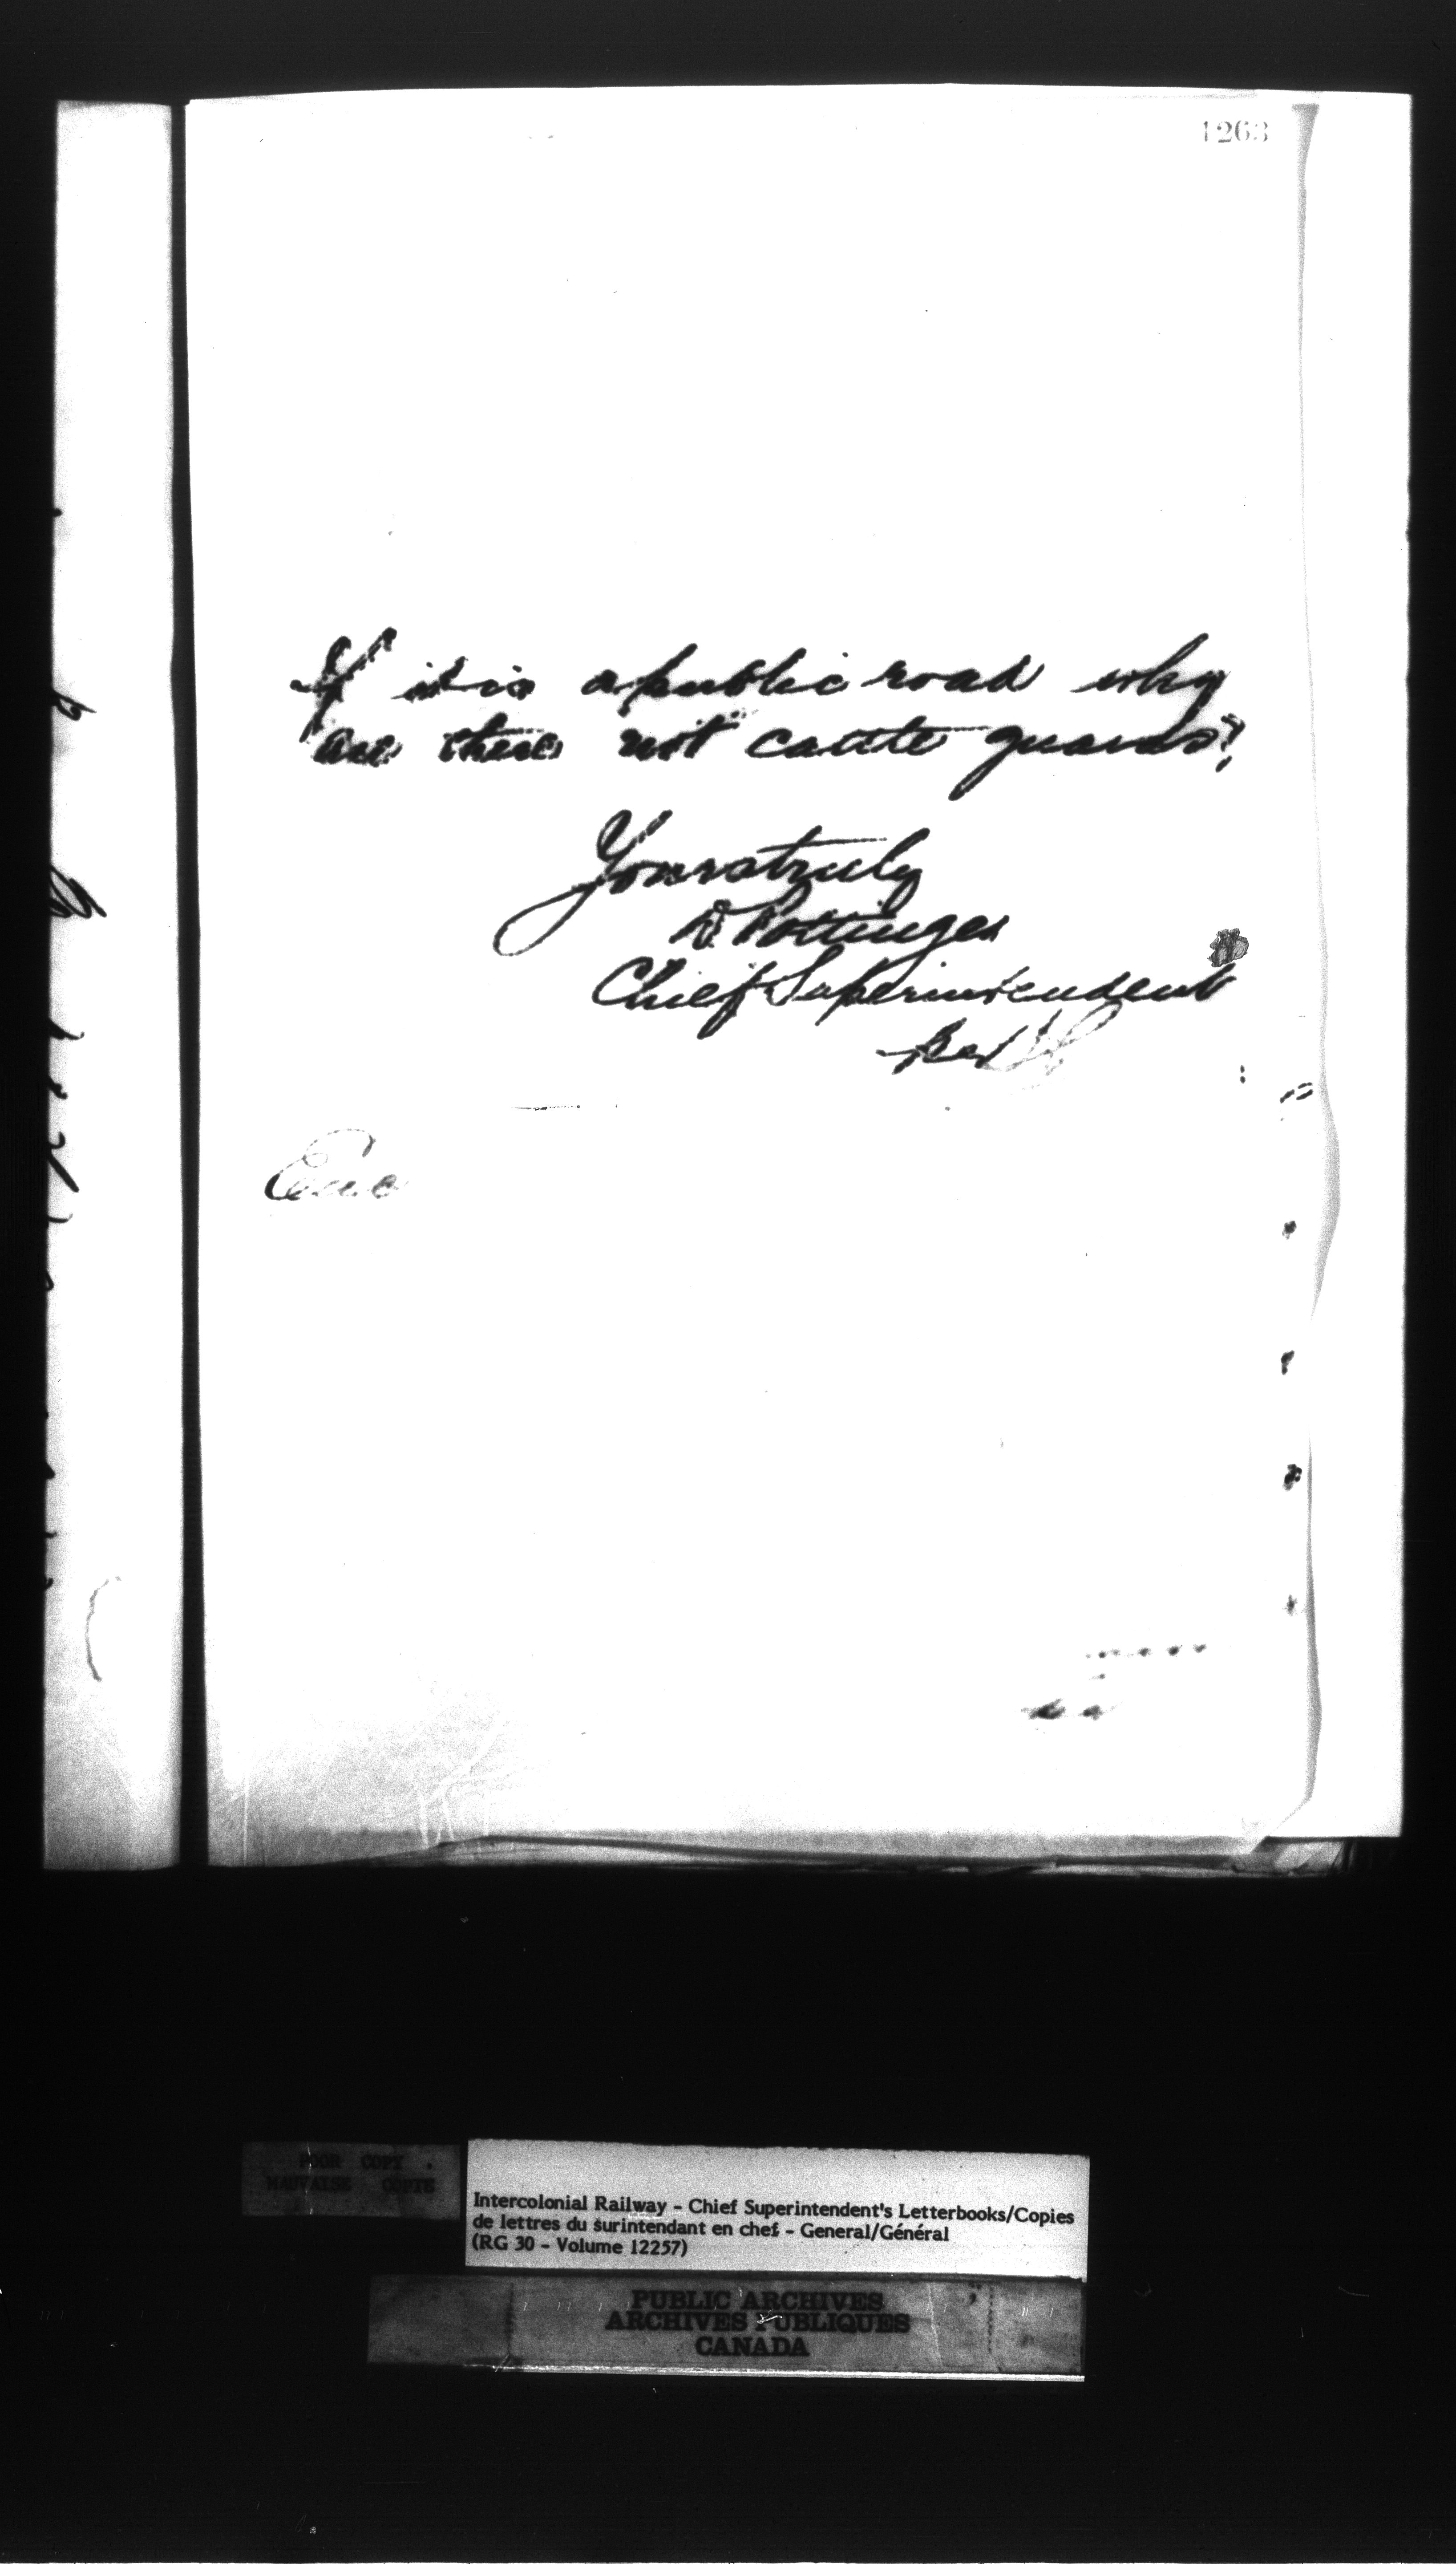 1263
If it is a public road why
are there not cattle guards?
Yours truly
D Pottinger
Chief Superintendent
Per
Enc
POOR COPY
MAUVAISE COPIE
Intercolonial Railway - Chief Superintendent's Letterbooks/Copies
de lettres du surintendant en chef - General/Général
(RG 30 - Volume 12257)
PUBLIC ARCHIVES
ARCHIVES PUBLIQUES
CANADA